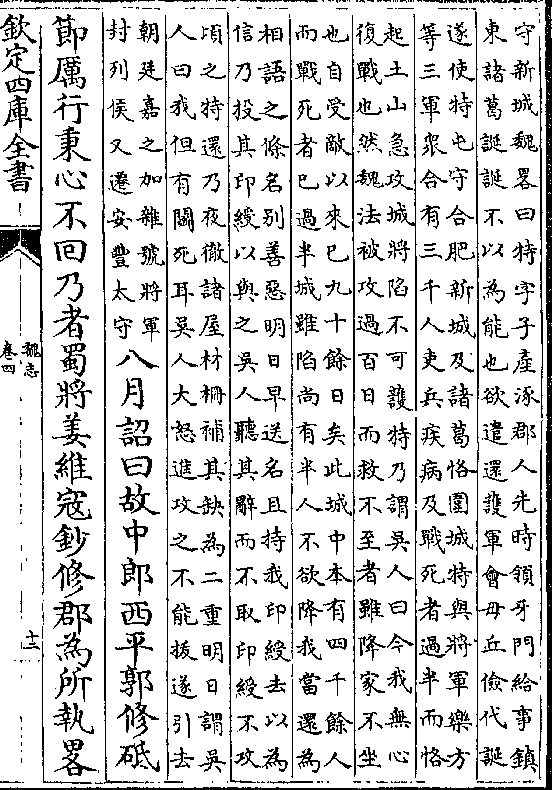 守新城魏畧曰特字子產涿郡人先時領牙門給事鎮
東諸葛誕誕不以為能也欲遣還護軍會毋丘儉代誕
遂使特屯守合肥新城及諸葛恪圍城特與將軍樂方
等三軍衆合有三千人吏兵疾病及戰死者過半而恪
起土山急攻城將陷不可護特乃謂吳人曰今我無心
復戰也然魏法被攻過百日而救不至者雖降家不坐
也自受敵以來已九十餘日矣此城中本有四千餘人
而戰死者已過半城雖陷尚有半人不欲降我當還為
相語之條名別善惡明日早送名且持我印綬去以為
信乃投其印綬以與之吳人聽其辭而不取印綬不攻
頃之特還乃夜徹諸屋材柵補其缺為二重明日謂吳
人曰我但有鬭死耳吳人大怒進攻之不能拔遂引去
朝廷嘉之加雜號將軍
封列侯又遷安豐太守
八月詔曰故中郎西平郭修砥
節厲行秉心不回乃者蜀將姜維寇鈔修郡為所執畧
欽定四庫全書
魏志
卷四
十三